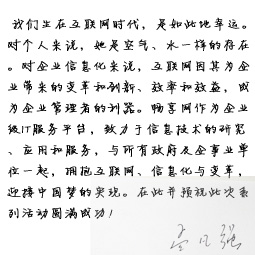 我们生在互联网时代，是如此地幸运。
对个人来说，她是空气、水一样的存在
。对企业信息化来说，互联网因其为企
业带来的变革和创新、效率和效益，成
为企业管理者的利器。畅享网作为企业
级IT服务平台，致力于信息技术的研究
、应用和服务，与所有政府及企事业单
位一起，拥抱互联网、信息化与变革，
迎接中国梦的实现。在此并预祝此次系
列活动圆满成功！